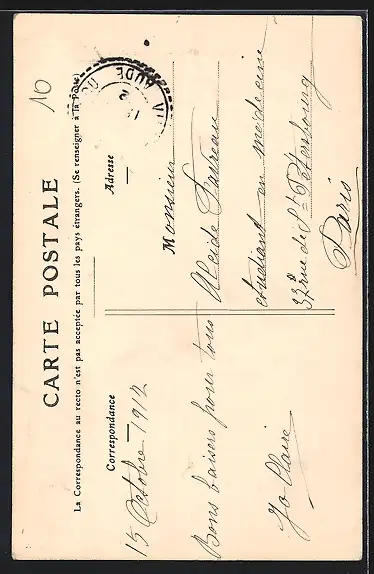 10
CARTE POSTALE
La Correspondance au recto n'est pas acceptée par tous les pays étrangers. (Se renseigner à la Poste)
Correspondance
15 Octobre 1912
Bons baisers pour tous
Adresse
AUDE
Monsieur
Favreau
étudiant en médecine
32 rue de St Pétersbourg
Paris